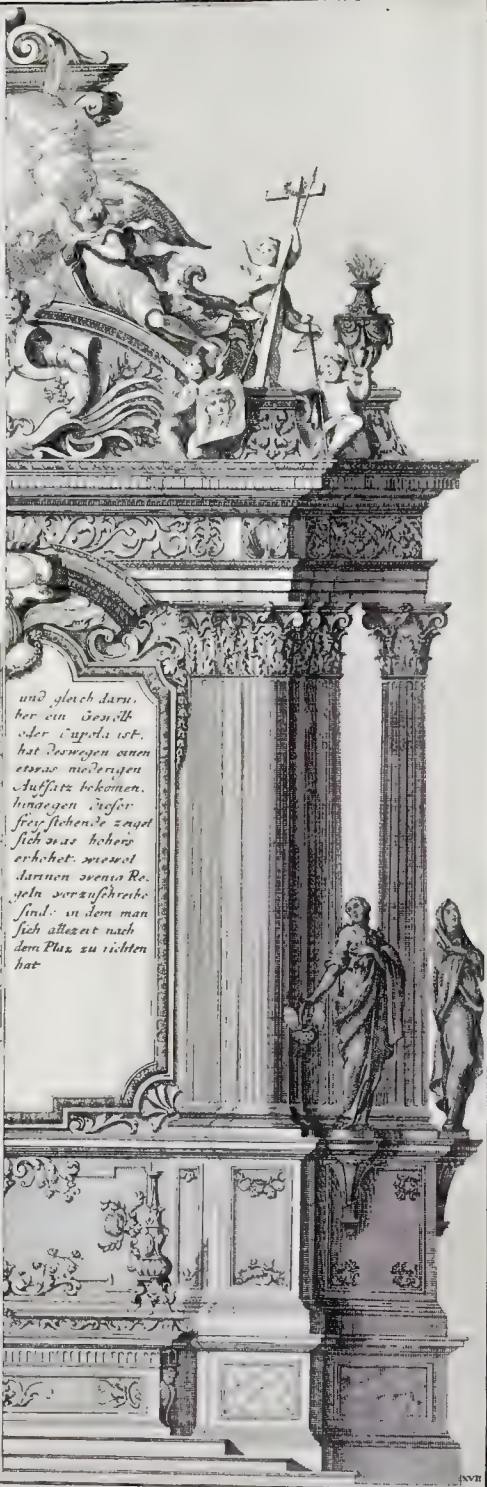 und gleich darü,
ber ein Gewölb
oder Cupola ist,
hat deswegen einen
etwas niederigen
Auffsatz bekomen,
hingegen dieser
frey stehende zeiget
sich was hohers
erhöhet. wiewol
darinnen wenig Re-
geln vorzuschreibe
sind: in dem man
sich allezeit nach
dem Plaz zu richten
hat